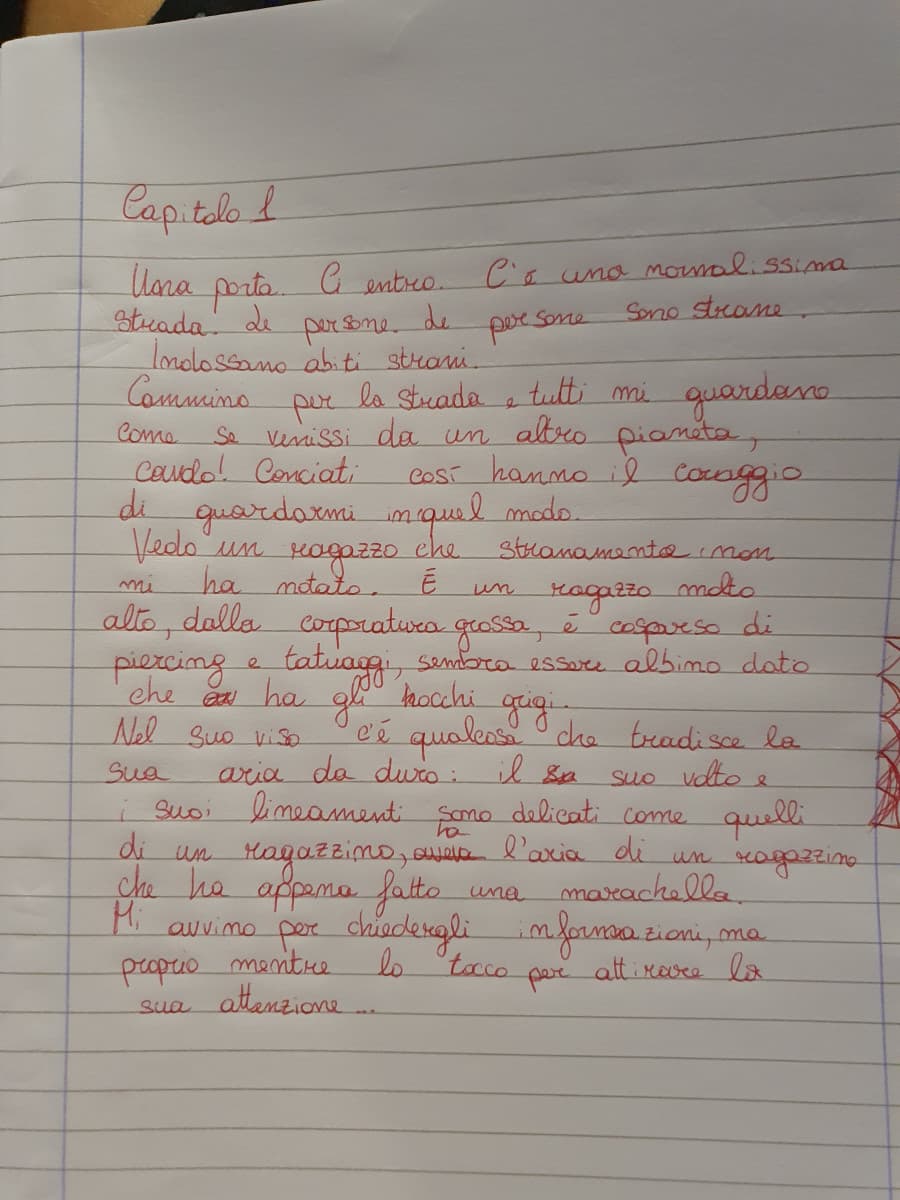 Capitolo 1
Una porta. Ci entro. C'è una normalissima
strada. Le persone. Le persone sono strane.
Indossano abiti strani.
Cammino per la strada e tutti mi guardano
come se venissi da un altro pianeta,
cavolo! Conciati così hanno il coraggio
di guardarmi in quel modo.
Vedo un ragazzo che stranamente non
mi ha notato. È un ragazzo molto
alto, dalla corporatura grossa, è cosparso di
piercing e tatuaggi, sembra essere albino dato
che ha gli hocchi grigi.
Nel suo viso c'é qualcosa che tradisce la
sua aria da duro: il suo volto e
i suoi lineamenti sono delicati come quelli
di un ragazzino, ha l'aria di un ragazzino
che ha appena fatto una marachella.
Mi avvino per chiedergli informazioni, ma
proprio mentre lo tocco per attirare la
sua attenzione...